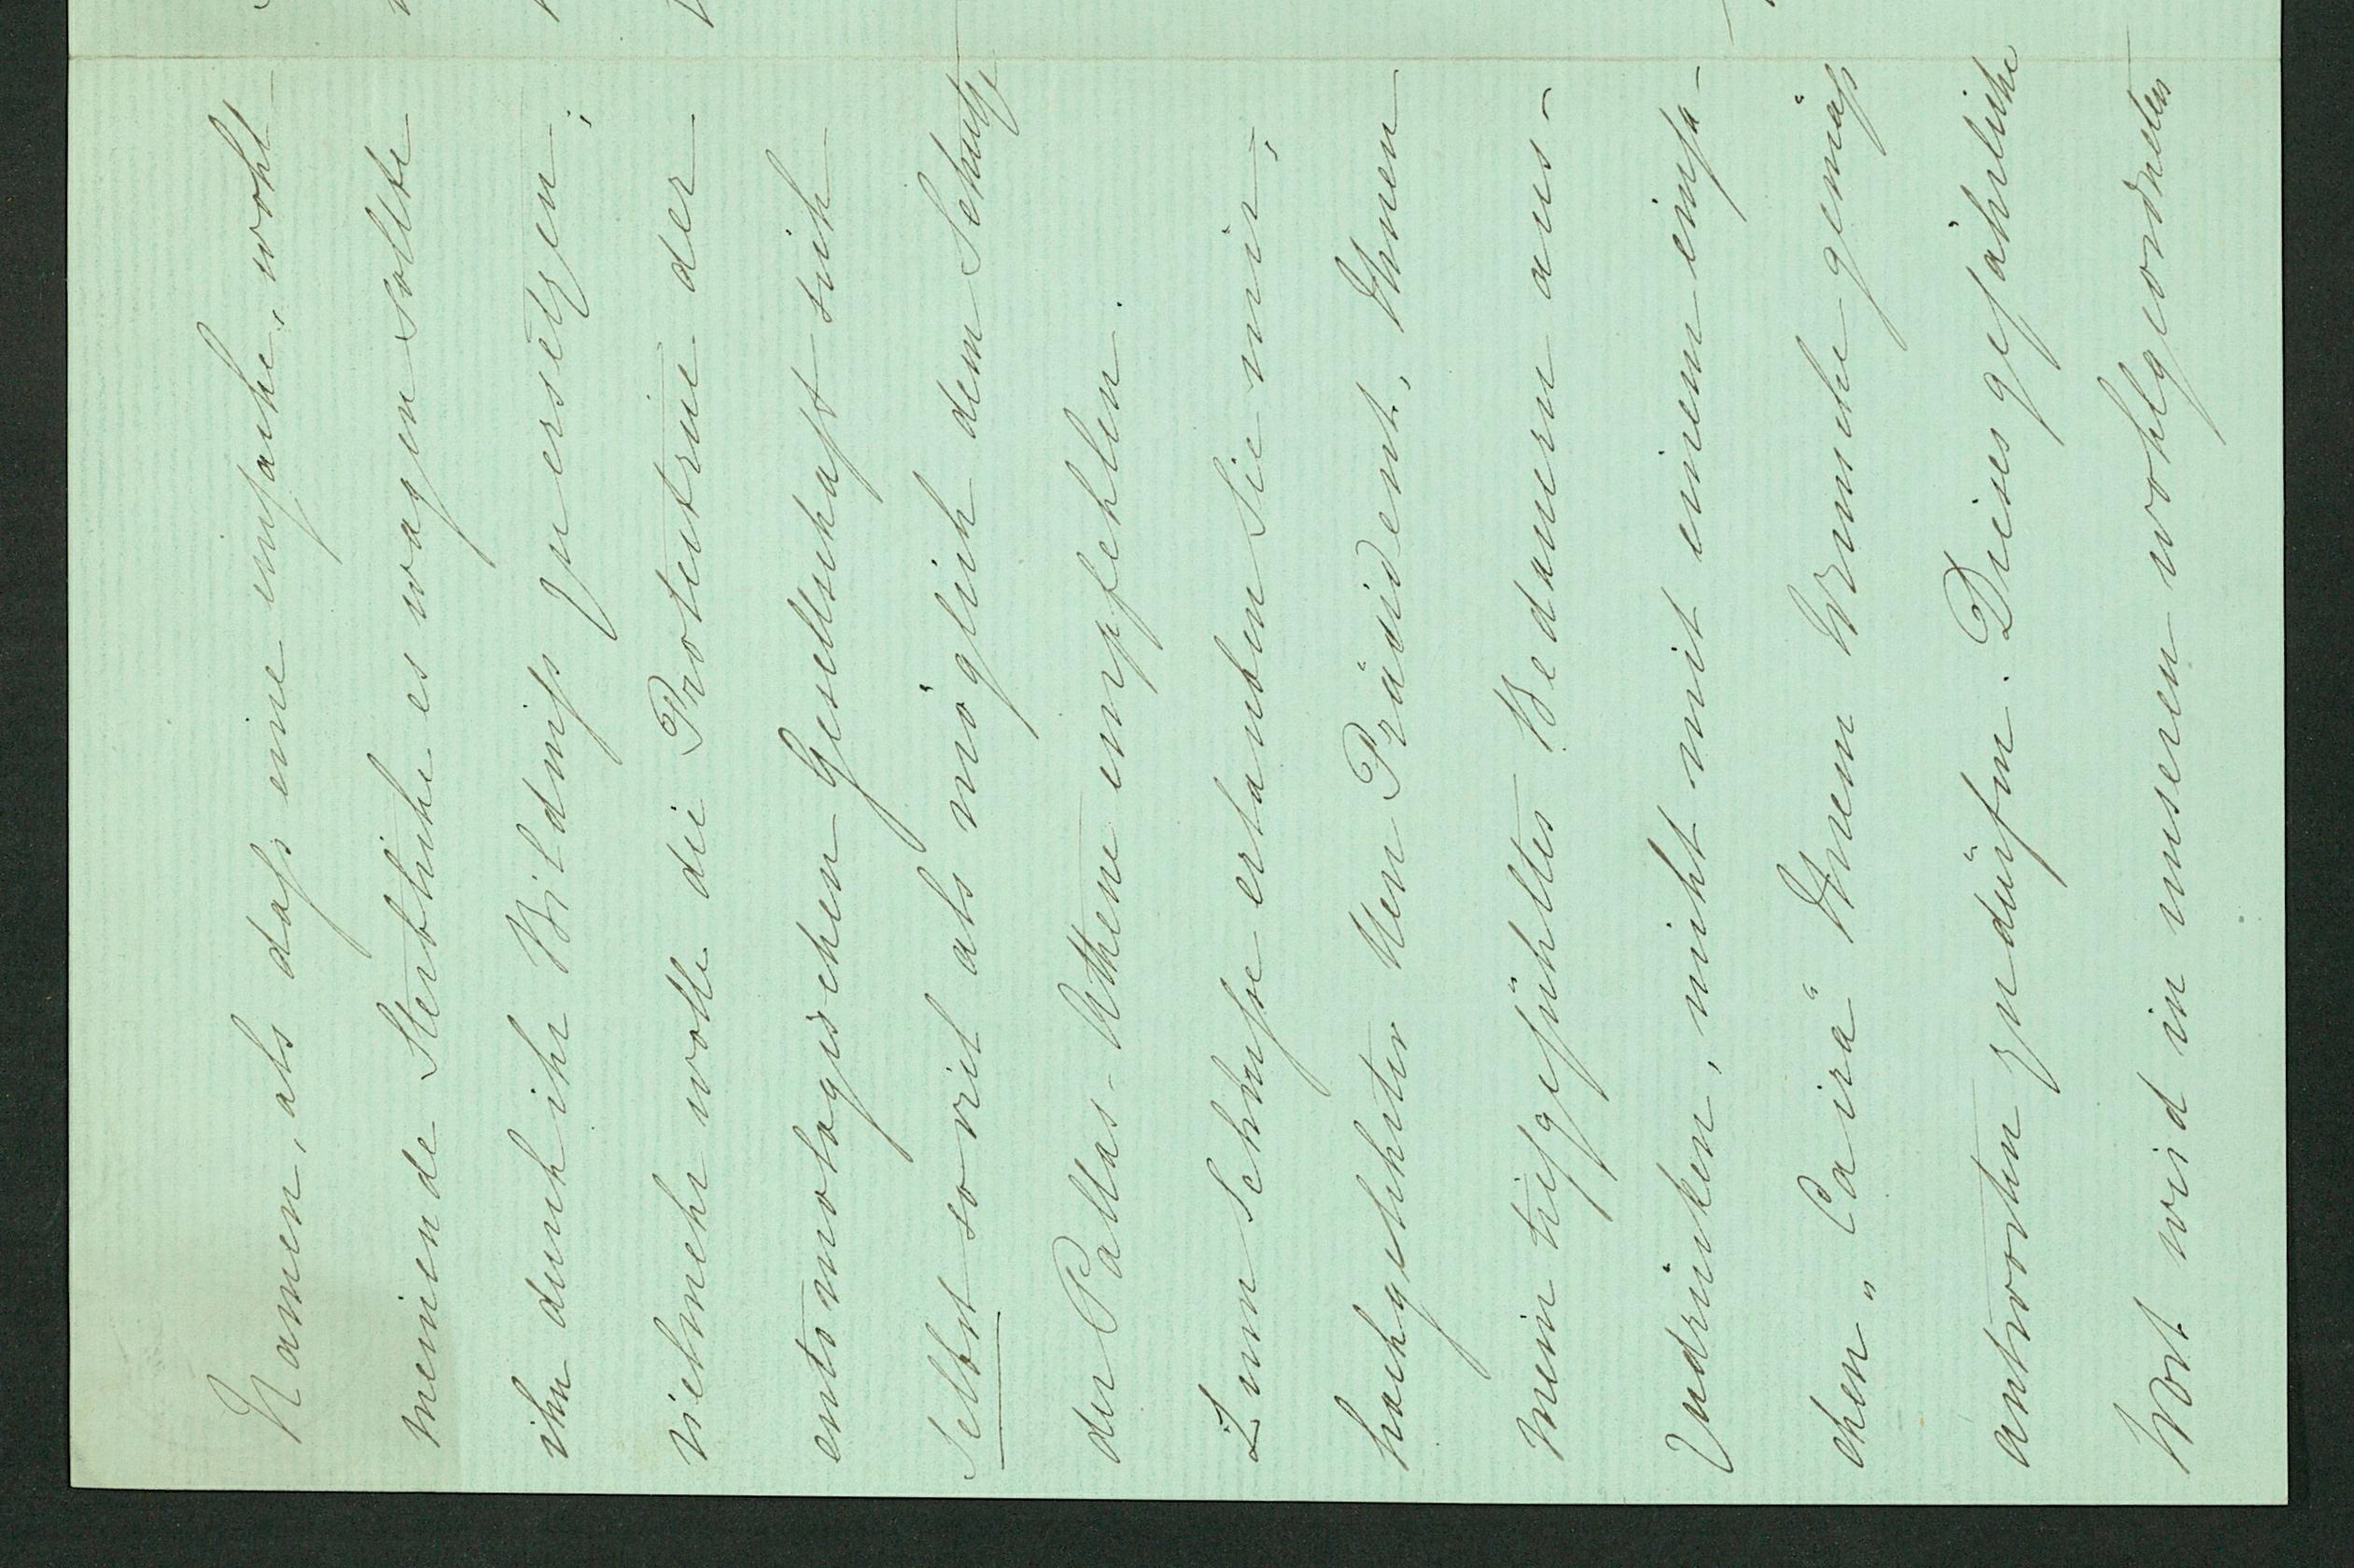 Namen, als daß eine einfache, wohl-
meinende Sterbliche es wagen sollte
ihn durch ihr Bildniß zu ersetzen;
vielmehr wolle die Protectrice der
entomologischen Gesellschaft sich
selbst soviel als möglich dem Schutze
der Pallas-Athene empfehlen.
Zum Schluße erlauben Sie mir,
hochgeehrter Herr Präsident, Ihnen
mein tiefgefühltes Bedauern aus-
zudrücken, nicht mit einem einfa-
chen „Caira“ Ihrem Wunsche gemäß
antworten zu dürfen. Dieses gefährliche
Wort wird in unseren wohlgeordneten